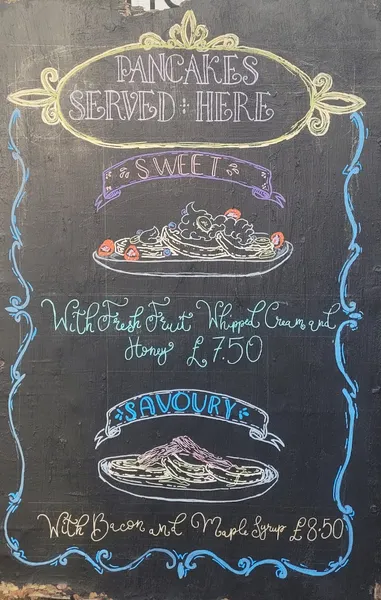 PANCAKES
SERVED HERE
SWEET
With Fresh Fruit Whipped Cream and
Honey £7.50
SAVOURY
With Bacon and Maple Syrup £8.50